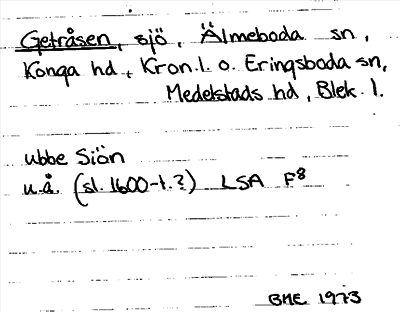 Getråsen, sjö, Älmeboda sn,
Konga hd, Kron.l. o. Eringsboda sn,
Medelstads hd, Blek. l.
ubbe Siön
u.å. (sl. 1600-t.?) LSA F8
BHE 1973